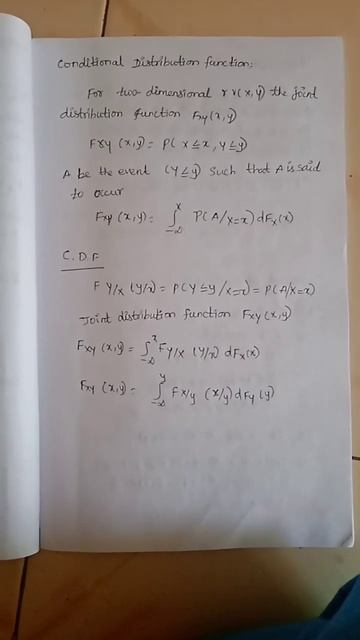 Conditional Distribution function:
For two dimensional r v (x,y) the joint
distribution function Fxy(x,y)
Fxy (x,y) = P(x ≤ x, y ≤ y)
A be the event (Y ≤ y) such that A is said
to occur
Fxy (x,y) = ∫_{-∞}^{x} P(A/x=x) dFx(x)
C.D.F
F Y/x (y/x) = P(Y ≤ y /x=x) = P(A/x=x)
Joint distribution function Fxy (x,y)
Fxy (x,y) = ∫_{-∞}^{x} F y/x (y/x) dFx(x)
Fxy (x,y) = ∫_{-∞}^{y} F x/y (x/y) dFy (y)